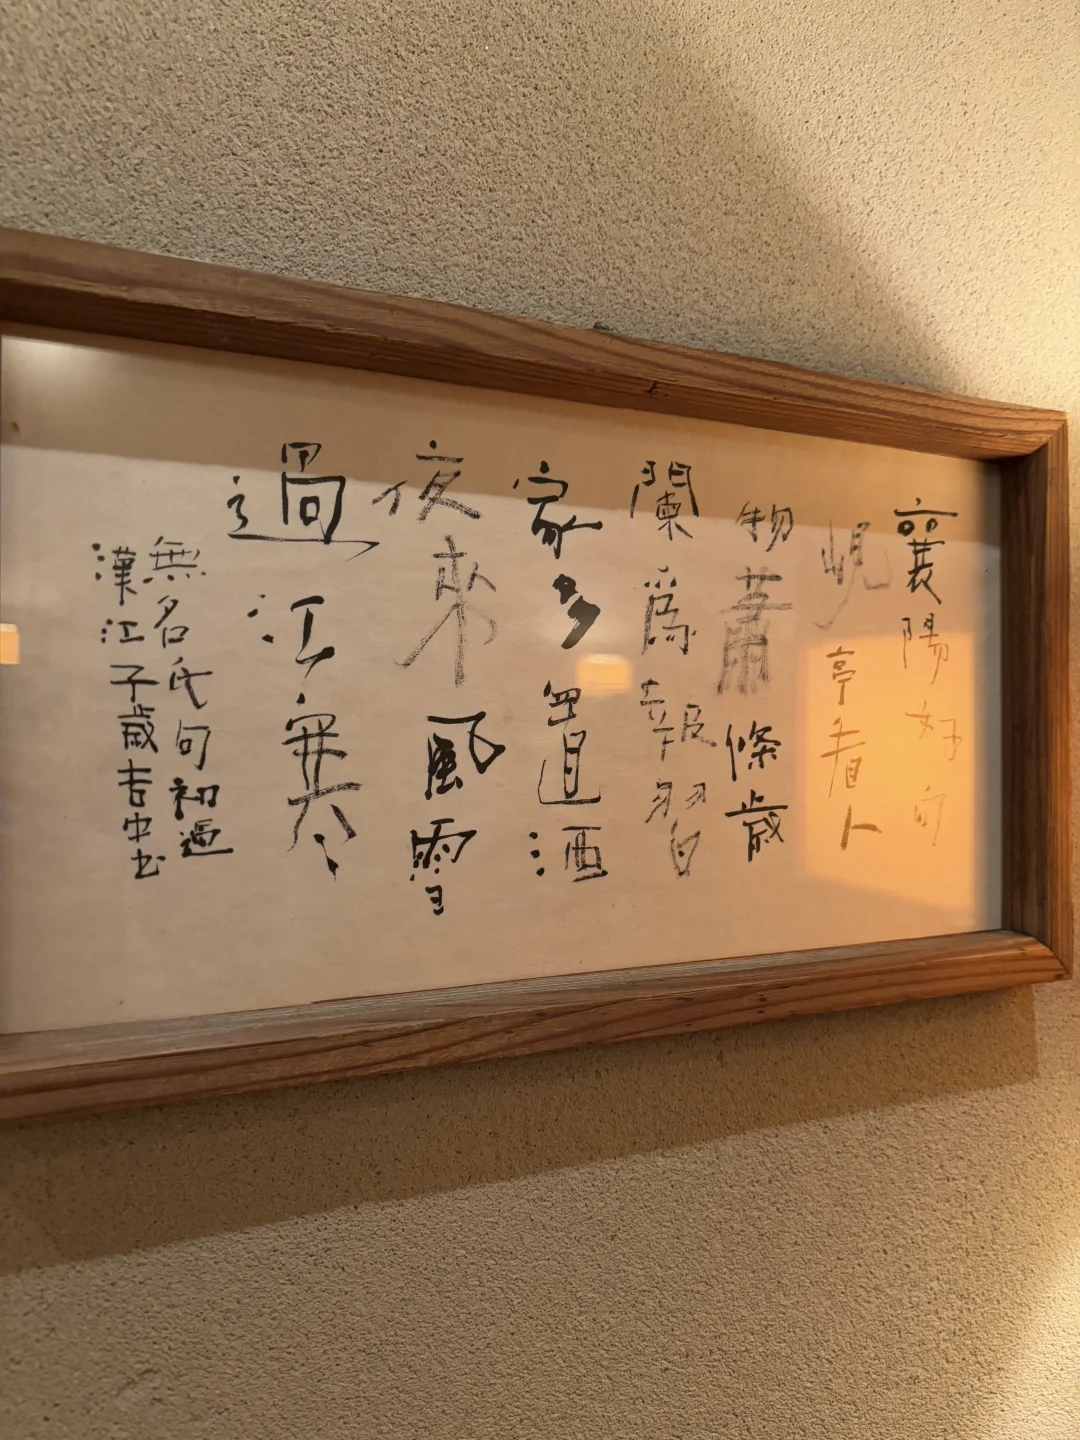 襄陽好向
峴亭看人
物蕭條歳
闌爲報習
家多置酒
夜來風雪
過江寒
無名氏句初過
漢江子歳吉中书